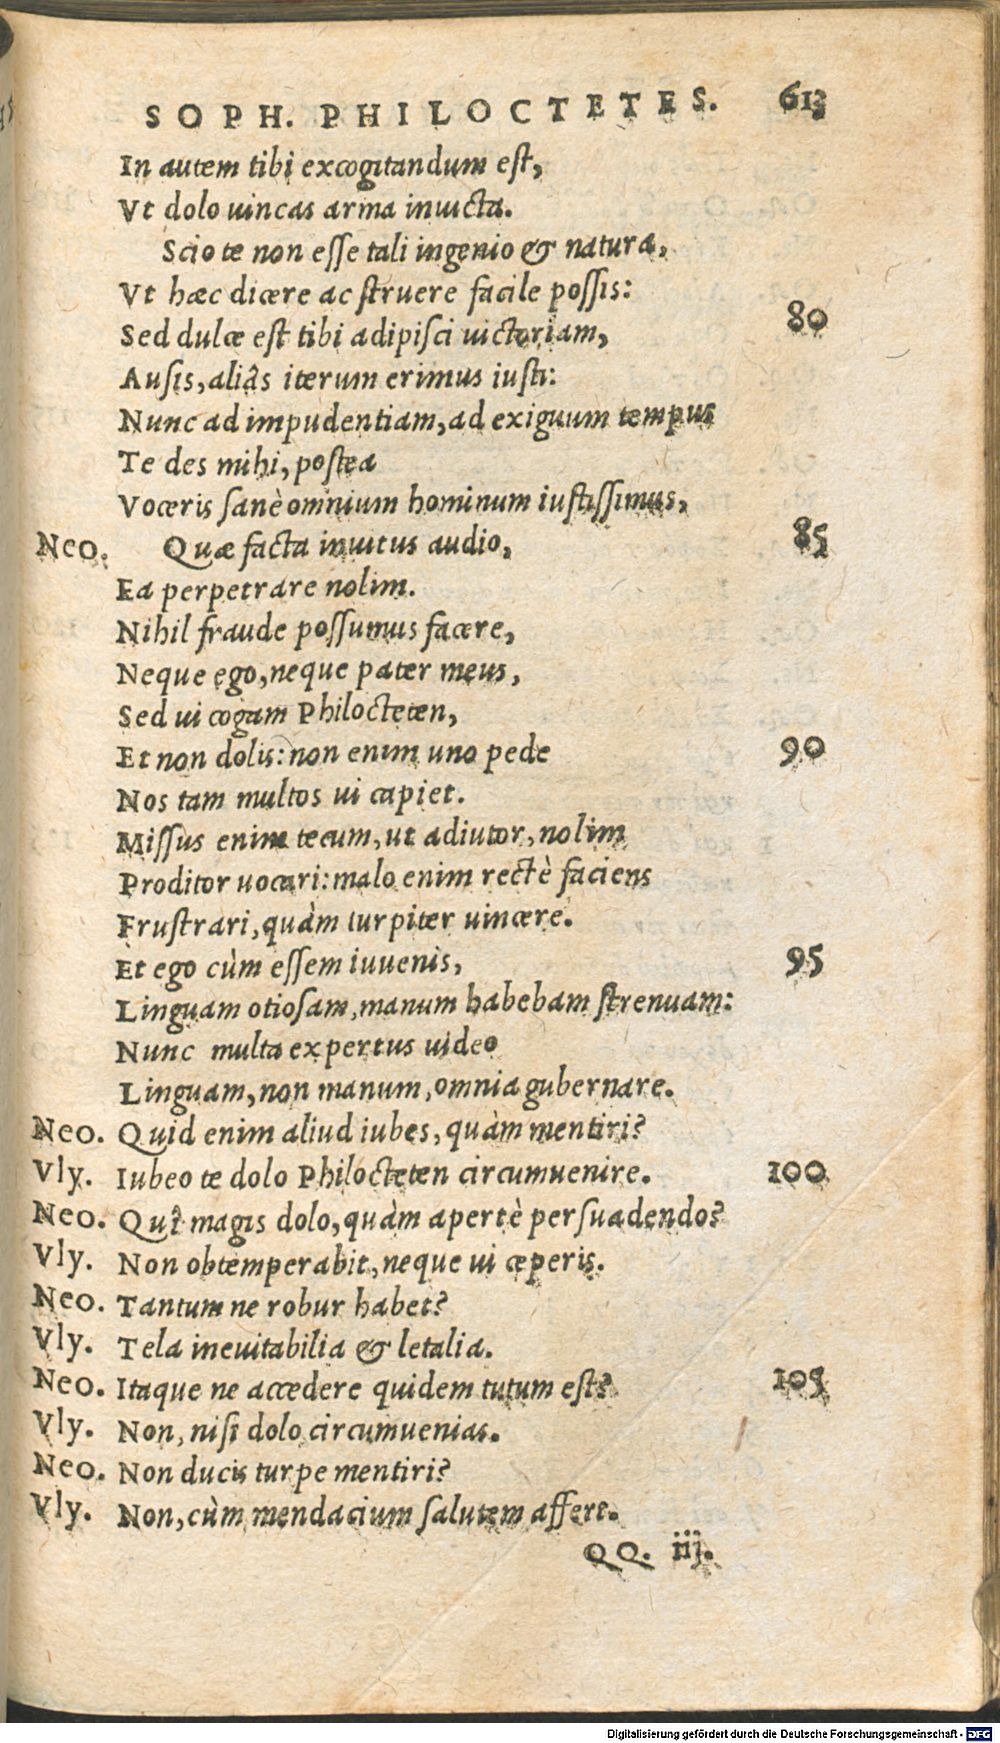 SOPH. PHILOCTETES. 613
In autem tibi excogitandum est,
Vt dolo uincas arma inuicta.
Scio te non esse tali ingenio & natura,
Vt hæc dicere ac struere facile possis:
Sed dulce est tibi adipisci uictoriam, 80
Ausis, aliâs iterum erimus iusti:
Nunc ad impudentiam, ad exiguum tempus
Te des mihi, postea
Voceris sanè omnium hominum iustissimus,
Neo. Quæ facta inuitus audio, 85
Ea perpetrare nolim.
Nihil fraude possumus facere,
Neque ego, neque pater meus,
Sed ui cogam Philocteten,
Et non dolis: non enim uno pede 90
Nos tam multos ui capiet.
Missus enim tecum, ut adiutor, nolim
Proditor uocari: malo enim rectè faciens
Frustrari, quàm turpiter uincere.
Et ego cùm essem iuuenis, 95
Linguam otiosam, manum habebam strenuam:
Nunc multa expertus uideo
Linguam, non manum, omnia gubernare.
Neo. Quid enim aliud iubes, quàm mentiri?
Vly. Iubeo te dolo Philocteten circumuenire. 100
Neo. Quî magis dolo, quàm apertè persuadendo?
Vly. Non obtemperabit, neque ui ceperis.
Neo. Tantum ne robur habet?
Vly. Tela ineuitabilia & letalia.
Neo. Itaque ne accedere quidem tutum est? 105
Vly. Non, nisi dolo circumuenias.
Neo. Non ducis turpe mentiri?
Vly. Non, cùm mendacium salutem affert.
QQ. iij.
Digitalisierung gefördert durch die Deutsche Forschungsgemeinschaft - DFG